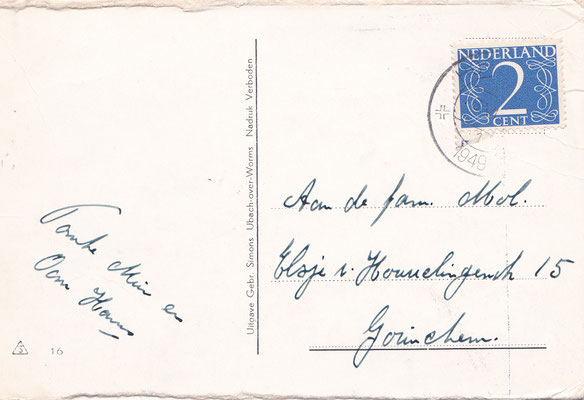 NEDERLAND
2
CENT
1949
Aan de fam. Mol.
Elsje v. Houwelingenstr 15
Gorinchem.
Tante Mien en
Oom Hans
Uitgave Gebr. Simons Ubach-over-Worms Nadruk Verboden
16